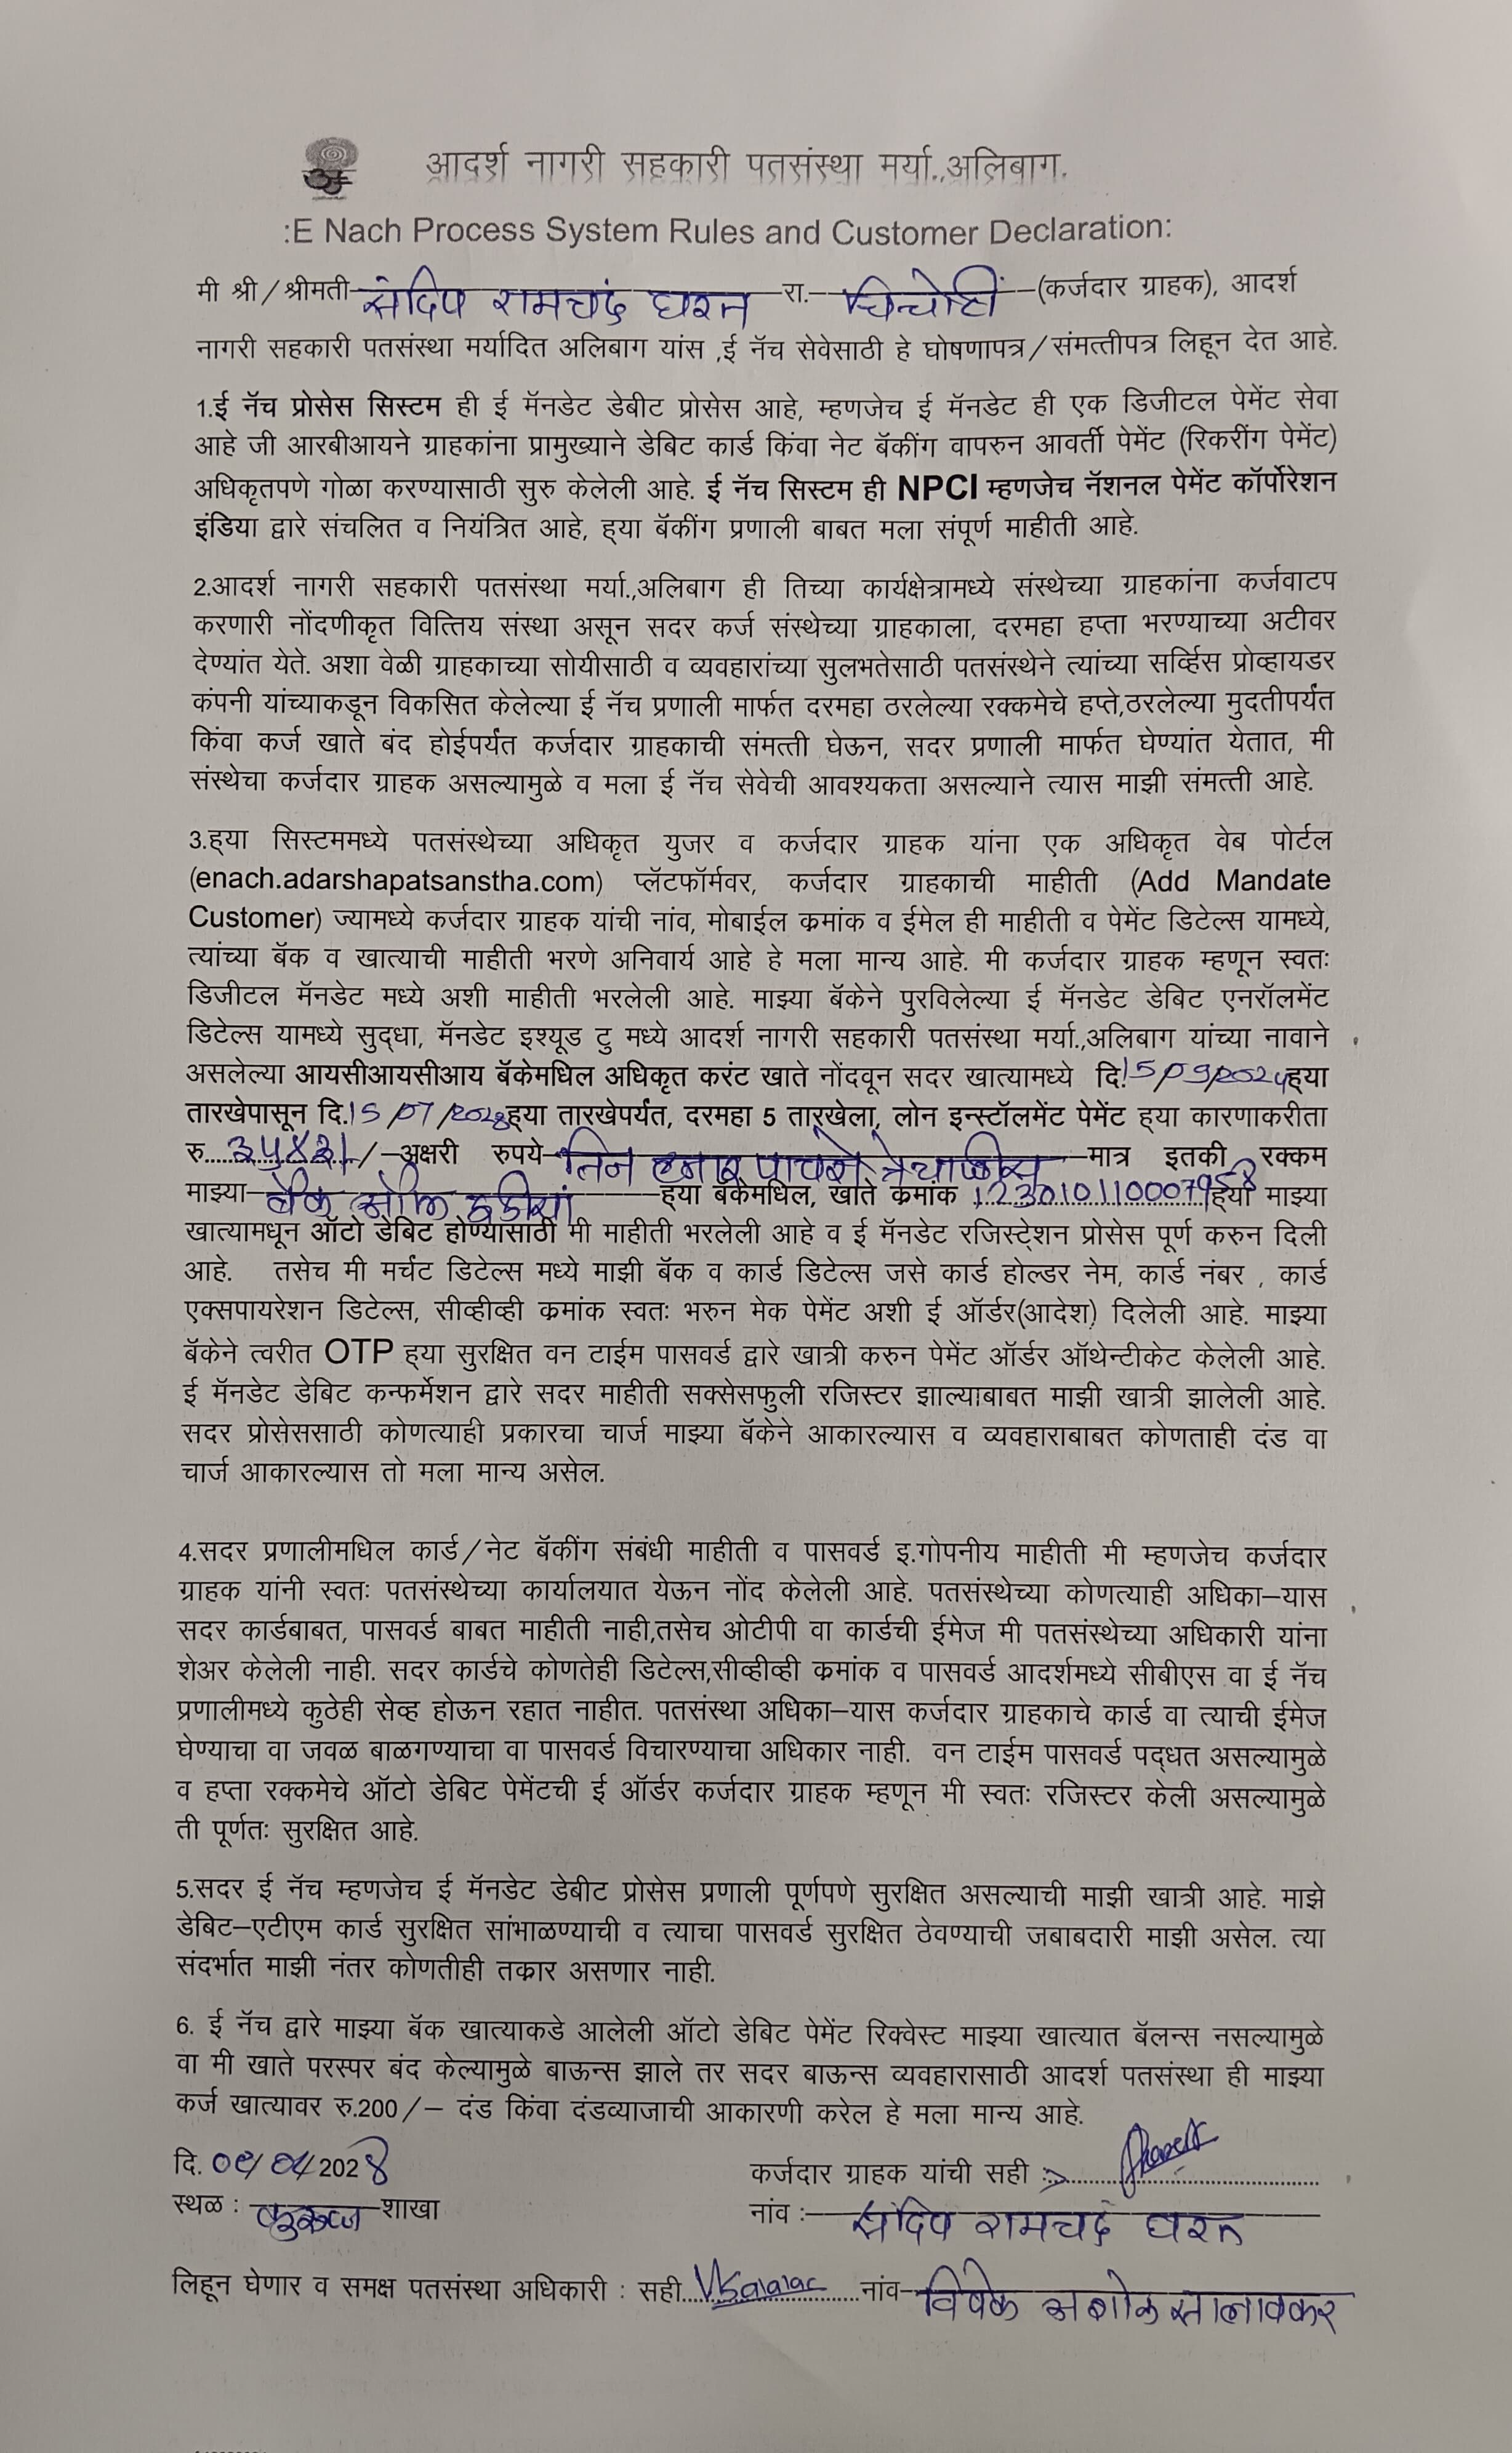 आदर्श नागरी सहकारी पतसंस्था मर्या.,अलिबाग.
:E Nach Process System Rules and Customer Declaration:
मी श्री/श्रीमती संदिप रामचंद्र घरत रा. (कर्जदार ग्राहक), आदर्श
नागरी सहकारी पतसंस्था मर्यादित अलिबाग यांस ,ई नॅच सेवेसाठी हे घोषणापत्र/संमत्तीपत्र लिहून देत आहे.
1.ई नॅच प्रोसेस सिस्टम ही ई मॅनडेट डेबीट प्रोसेस आहे, म्हणजेच ई मॅनडेट ही एक डिजीटल पेमेंट सेवा
आहे जी आरबीआयने ग्राहकांना प्रामुख्याने डेबिट कार्ड किंवा नेट बॅकींग वापरुन आवर्ती पेमेंट (रिकरींग पेमेंट)
अधिकृतपणे गोळा करण्यासाठी सुरु केलेली आहे. ई नॅच सिस्टम ही NPCI म्हणजेच नॅशनल पेमेंट कॉर्पोरेशन
इंडिया द्वारे संचलित व नियंत्रित आहे, ह्या बॅकींग प्रणाली बाबत मला संपूर्ण माहीती आहे.
2.आदर्श नागरी सहकारी पतसंस्था मर्या.,अलिबाग ही तिच्या कार्यक्षेत्रामध्ये संस्थेच्या ग्राहकांना कर्जवाटप
करणारी नोंदणीकृत वित्तिय संस्था असून सदर कर्ज संस्थेच्या ग्राहकाला, दरमहा हप्ता भरण्याच्या अटीवर
देण्यांत येते. अशा वेळी ग्राहकाच्या सोयीसाठी व व्यवहारांच्या सुलभतेसाठी पतसंस्थेने त्यांच्या सर्व्हिस प्रोव्हायडर
कंपनी यांच्याकडून विकसित केलेल्या ई नॅच प्रणाली मार्फत दरमहा ठरलेल्या रक्कमेचे हप्ते,ठरलेल्या मुदतीपर्यंत
किंवा कर्ज खाते बंद होईपर्यंत कर्जदार ग्राहकाची संमत्ती घेऊन, सदर प्रणाली मार्फत घेण्यांत येतात, मी
संस्थेचा कर्जदार ग्राहक असल्यामुळे व मला ई नॅच सेवेची आवश्यकता असल्याने त्यास माझी संमत्ती आहे.
3.ह्या सिस्टममध्ये पतसंस्थेच्या अधिकृत युजर व कर्जदार ग्राहक यांना एक अधिकृत वेब पोर्टल
(enach.adarshapatsanstha.com) प्लॅटफॉर्मवर, कर्जदार ग्राहकाची माहीती (Add Mandate
Customer) ज्यामध्ये कर्जदार ग्राहक यांची नांव, मोबाईल क्रमांक व ईमेल ही माहीती व पेमेंट डिटेल्स यामध्ये,
त्यांच्या बॅक व खात्याची माहीती भरणे अनिवार्य आहे हे मला मान्य आहे. मी कर्जदार ग्राहक म्हणून स्वतः
डिजीटल मॅनडेट मध्ये अशी माहीती भरलेली आहे. माझ्या बॅकेने पुरविलेल्या ई मॅनडेट डेबिट एनरॉलमेंट
डिटेल्स यामध्ये सुद्धा, मॅनडेट इश्यूड टु मध्ये आदर्श नागरी सहकारी पतसंस्था मर्या.,अलिबाग यांच्या नावाने
असलेल्या आयसीआयसीआय बॅकेमधिल अधिकृत करंट खाते नोंदवून सदर खात्यामध्ये दि. ह्या
तारखेपासून दि.15/07/2028 ह्या तारखेपर्यंत, दरमहा 5 तारखेला, लोन इन्स्टॉलमेंट पेमेंट ह्या कारणाकरीता
रु. /-अक्षरी रुपये तिन हजार पाचशे त्रेचाळीस मात्र इतकी रक्कम
माझ्या बँक ऑफ इंडीया ह्या बॅकेमधिल, खाते क्रमांक 123010110007958 ह्या माझ्या
खात्यामधून ऑटो डेबिट होण्यासाठी मी माहीती भरलेली आहे व ई मॅनडेट रजिस्ट्रेशन प्रोसेस पूर्ण करुन दिली
आहे. तसेच मी मर्चंट डिटेल्स मध्ये माझी बॅक व कार्ड डिटेल्स जसे कार्ड होल्डर नेम, कार्ड नंबर , कार्ड
एक्सपायरेशन डिटेल्स, सीव्हीव्ही क्रमांक स्वतः भरुन मेक पेमेंट अशी ई ऑर्डर(आदेश) दिलेली आहे. माझ्या
बॅकेने त्वरीत OTP ह्या सुरक्षित वन टाईम पासवर्ड द्वारे खात्री करुन पेमेंट ऑर्डर ऑथेन्टीकेट केलेली आहे.
ई मॅनडेट डेबिट कन्फर्मेशन द्वारे सदर माहीती सक्सेसफुली रजिस्टर झाल्याबाबत माझी खात्री झालेली आहे.
सदर प्रोसेससाठी कोणत्याही प्रकारचा चार्ज माझ्या बॅकेने आकारल्यास व व्यवहाराबाबत कोणताही दंड वा
चार्ज आकारल्यास तो मला मान्य असेल.
4.सदर प्रणालीमधिल कार्ड/नेट बॅकींग संबंधी माहीती व पासवर्ड इ.गोपनीय माहीती मी म्हणजेच कर्जदार
ग्राहक यांनी स्वतः पतसंस्थेच्या कार्यालयात येऊन नोंद केलेली आहे. पतसंस्थेच्या कोणत्याही अधिका-यास
सदर कार्डबाबत, पासवर्ड बाबत माहीती नाही,तसेच ओटीपी वा कार्डची ईमेज मी पतसंस्थेच्या अधिकारी यांना
शेअर केलेली नाही. सदर कार्डचे कोणतेही डिटेल्स,सीव्हीव्ही क्रमांक व पासवर्ड आदर्शमध्ये सीबीएस वा ई नॅच
प्रणालीमध्ये कुठेही सेव्ह होऊन रहात नाहीत. पतसंस्था अधिका-यास कर्जदार ग्राहकाचे कार्ड वा त्याची ईमेज
घेण्याचा वा जवळ बाळगण्याचा वा पासवर्ड विचारण्याचा अधिकार नाही. वन टाईम पासवर्ड पद्धत असल्यामुळे
व हप्ता रक्कमेचे ऑटो डेबिट पेमेंटची ई ऑर्डर कर्जदार ग्राहक म्हणून मी स्वतः रजिस्टर केली असल्यामुळे
ती पूर्णतः सुरक्षित आहे.
5.सदर ई नॅच म्हणजेच ई मॅनडेट डेबीट प्रोसेस प्रणाली पूर्णपणे सुरक्षित असल्याची माझी खात्री आहे. माझे
डेबिट-एटीएम कार्ड सुरक्षित सांभाळण्याची व त्याचा पासवर्ड सुरक्षित ठेवण्याची जबाबदारी माझी असेल. त्या
संदर्भात माझी नंतर कोणतीही तक्रार असणार नाही.
6. ई नॅच द्वारे माझ्या बॅक खात्याकडे आलेली ऑटो डेबिट पेमेंट रिक्वेस्ट माझ्या खात्यात बॅलन्स नसल्यामुळे
वा मी खाते परस्पर बंद केल्यामुळे बाऊन्स झाले तर सदर बाऊन्स व्यवहारासाठी आदर्श पतसंस्था ही माझ्या
कर्ज खात्यावर रु.200/- दंड किंवा दंडव्याजाची आकारणी करेल हे मला मान्य आहे.
दि. 202 कर्जदार ग्राहक यांची सही :
स्थळ : शाखा नांव :- संदिप रामचंद्र घरत
लिहून घेणार व समक्ष पतसंस्था अधिकारी : सही नांव- विवेक अशोक सालावकर